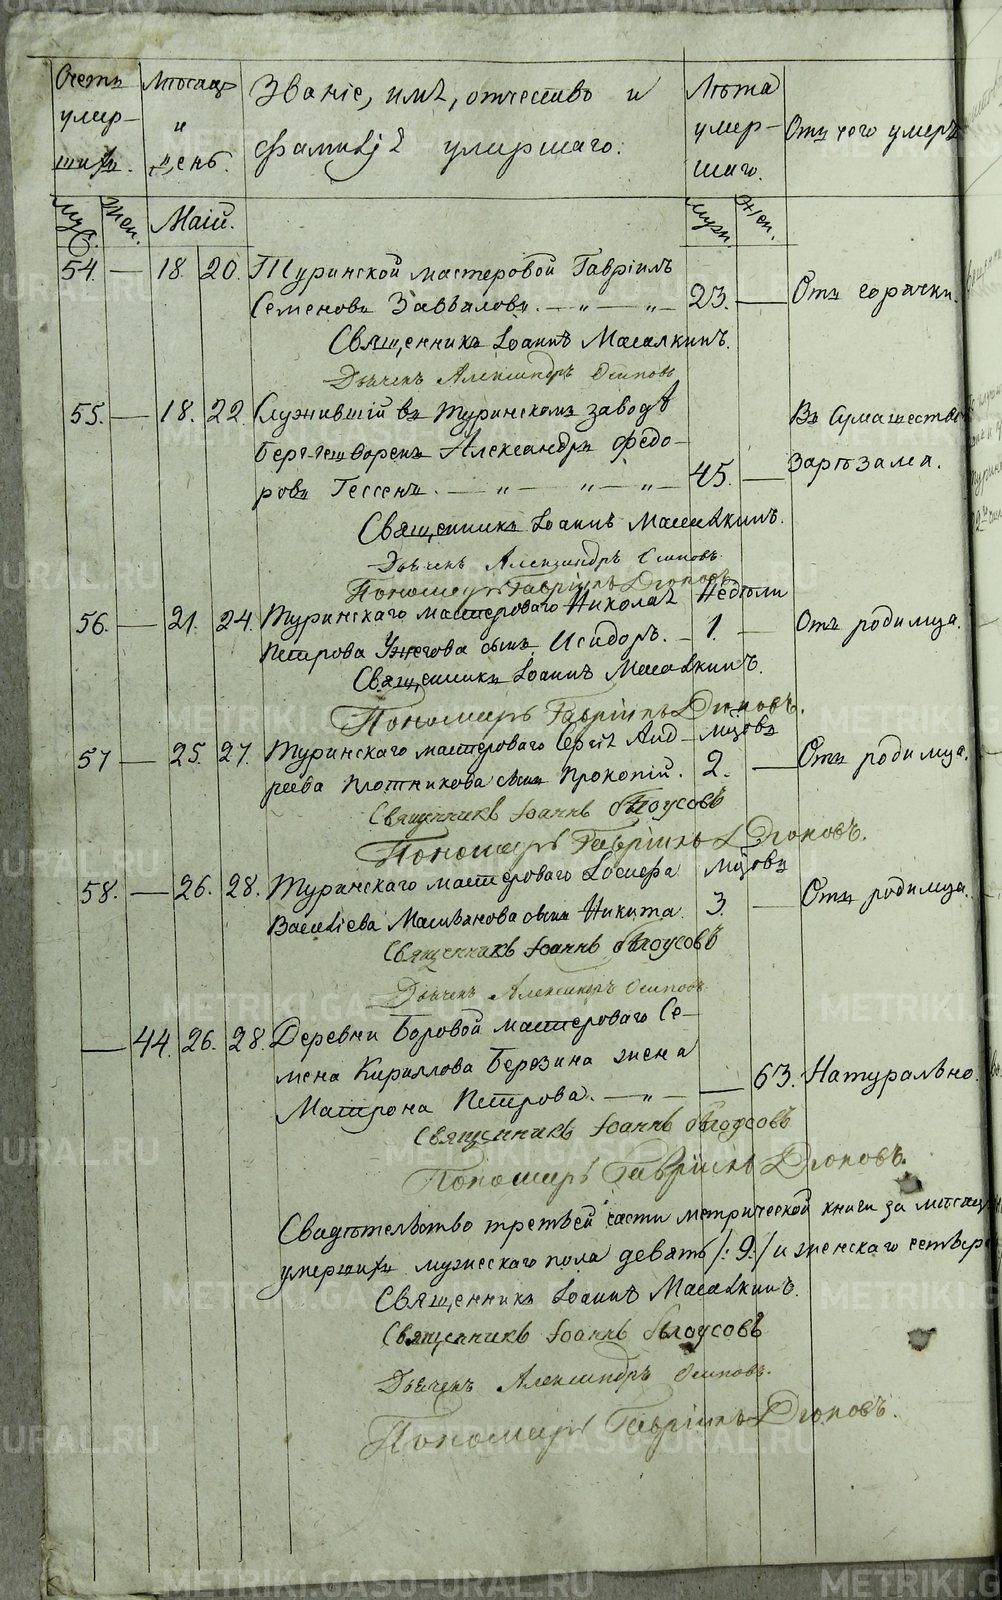 Счетъ умер-шихъ. Мѣсяцъ и день. Званіе, имя, отчество и фамилія умершаго. Лѣта умер-шаго. Отъ чего умеръ
Муж. Жен. Маій. Муж. Жен.
54. — 18. 20. Туринской мастеровой Гавріилъ
Семеновъ Заввяловъ. — „ — „ — 23. — Отъ горячки.
Священникъ Іоаннъ Масалкинъ.
Дьячекъ Александръ Осиповъ
55. — 18. 22. Служившій въ Туринскомъ заводѣ Въ сумашество
Берг-гешворенъ Александръ Федо-
ровъ Гессенъ. — „ — „ — „ — 45. — Зарѣзался.
Священникъ Іоаннъ Масалкинъ.
Дьячекъ Александръ Осиповъ.
Пономарь Гавріилъ Дюповъ
56. — 21. 24. Туринскаго мастероваго Николая Недѣли
Петрова Ужегова сынъ Исидоръ. — 1. — Отъ родимца.
Священникъ Іоаннъ Масалкинъ.
Пономарь Гавріилъ Дюповъ.
57 — 25. 27. Туринскаго мастероваго Сергія Анд- мцовъ
реева Плотникова сынъ Прокопій. 2. — Отъ родимца.
Священникъ Іоаннъ Бѣлоусовъ
Пономарь Гавріилъ Дюповъ.
58. — 26. 28. Туринскаго мастероваго Іосифа мцовъ
Василіева сынъ Никита. 3. — Отъ родимца.
Священникъ Іоаннъ Бѣлоусовъ
Дьячекъ Александръ Осиповъ.
— 44. 26. 28. Деревни Боровой мастероваго Се-
мена Кириллова Берозина жена
Матрона Петрова. — „ — — 63. Натурально.
Священникъ Іоаннъ Бѣлоусовъ
Пономарь Гавріилъ Дюповъ.
Свидѣтельство третьей части метрической книги за мѣсяцъ
умершихъ мужескаго пола девять /:9:/ и женскаго четыре
Священникъ Іоаннъ Масалкинъ.
Священникъ Іоаннъ Бѣлоусовъ
Дьячекъ Александръ Осиповъ.
Пономарь Гавріилъ Дюповъ.
METRIKI.GASO-URAL.RU